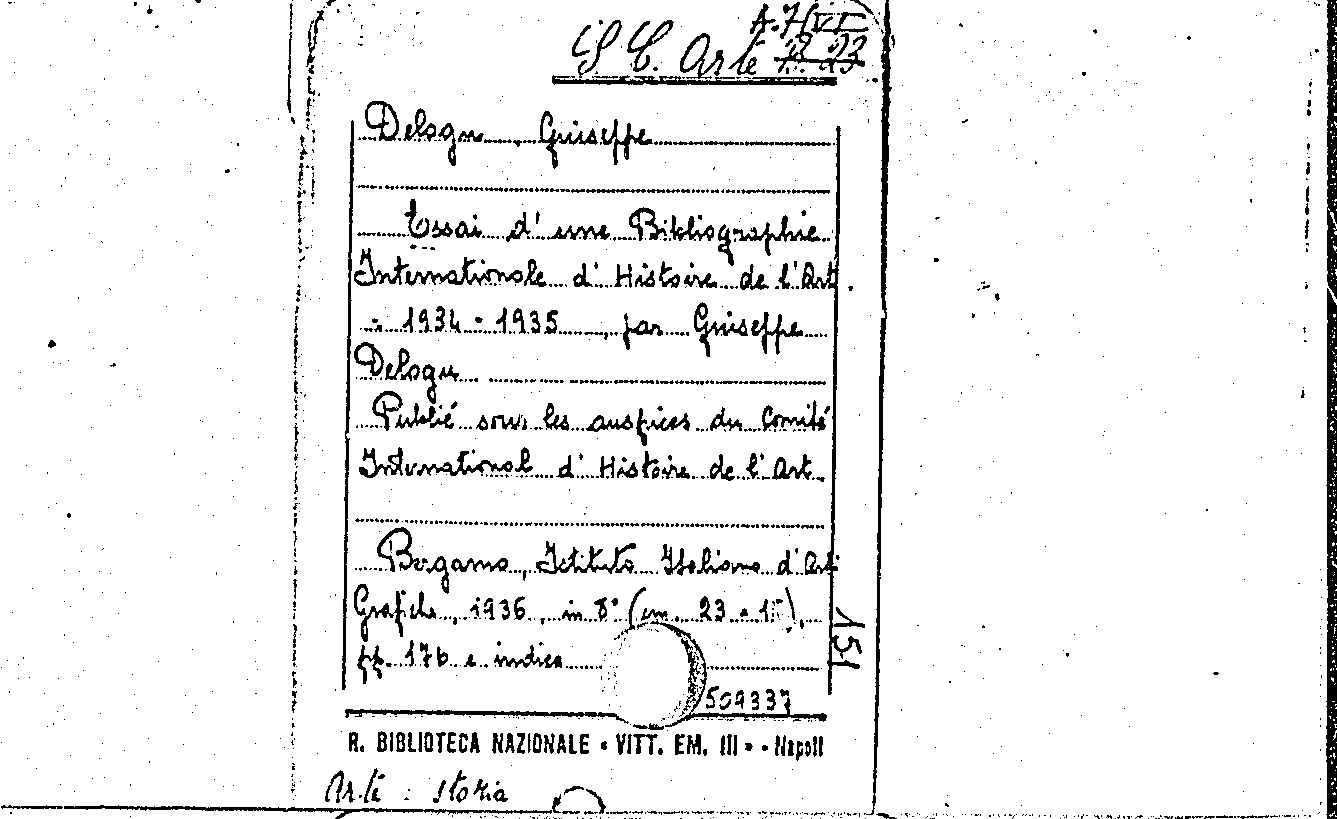 A.7/VI
S C. Arte B. 23
Delogu, Giuseppe
Essai d' une Bibliographie
Internationale d' Histoire de l'Art.
- 1934 - 1935, par Giuseppe
Delogu
Publié sous les auspices du Comité
International d' Histoire de l'Art.
Bergamo, Istituto Italiano d'Arti
Grafiche, 1936, in 8° (cm. 23 × 15),
pp. 176 e indice
151
509337
R. BIBLIOTECA NAZIONALE « VITT. EM. III » - Napoli
Arte : storia